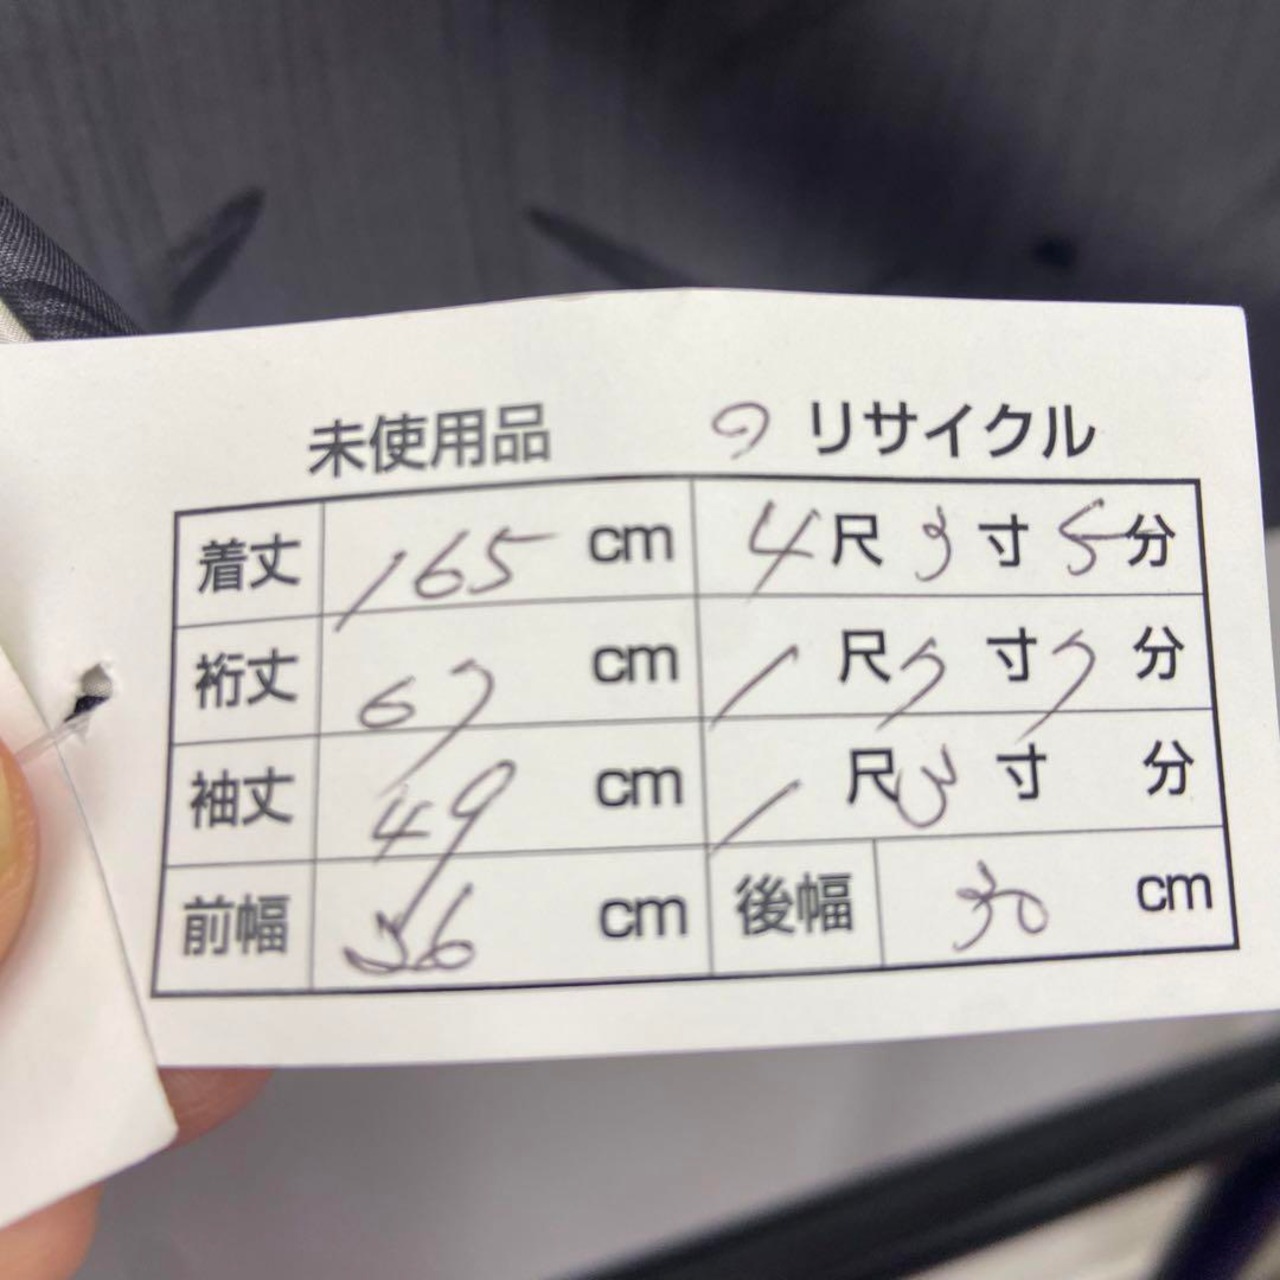 未使用品 リサイクル
着丈 165 cm 4 尺 3 寸 5 分
裄丈 67 cm 1 尺 7 寸 7 分
袖丈 49 cm 1 尺 3 寸 分
前幅 26 cm 後幅 30 cm